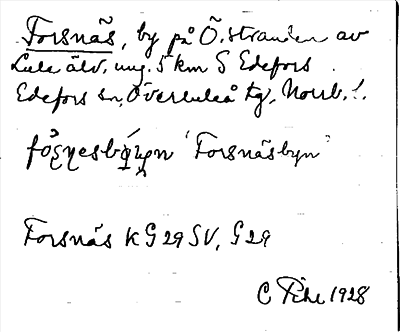 Forsnäs, by på Ö. stranden av
Lule älv, ung. 5 km S Edefors
Edefors sn, Överluleå tg, Norrb. l.
'Forsnäsbyn'
Forsnäs K G 29 SV, G 29
C Pihl 1928